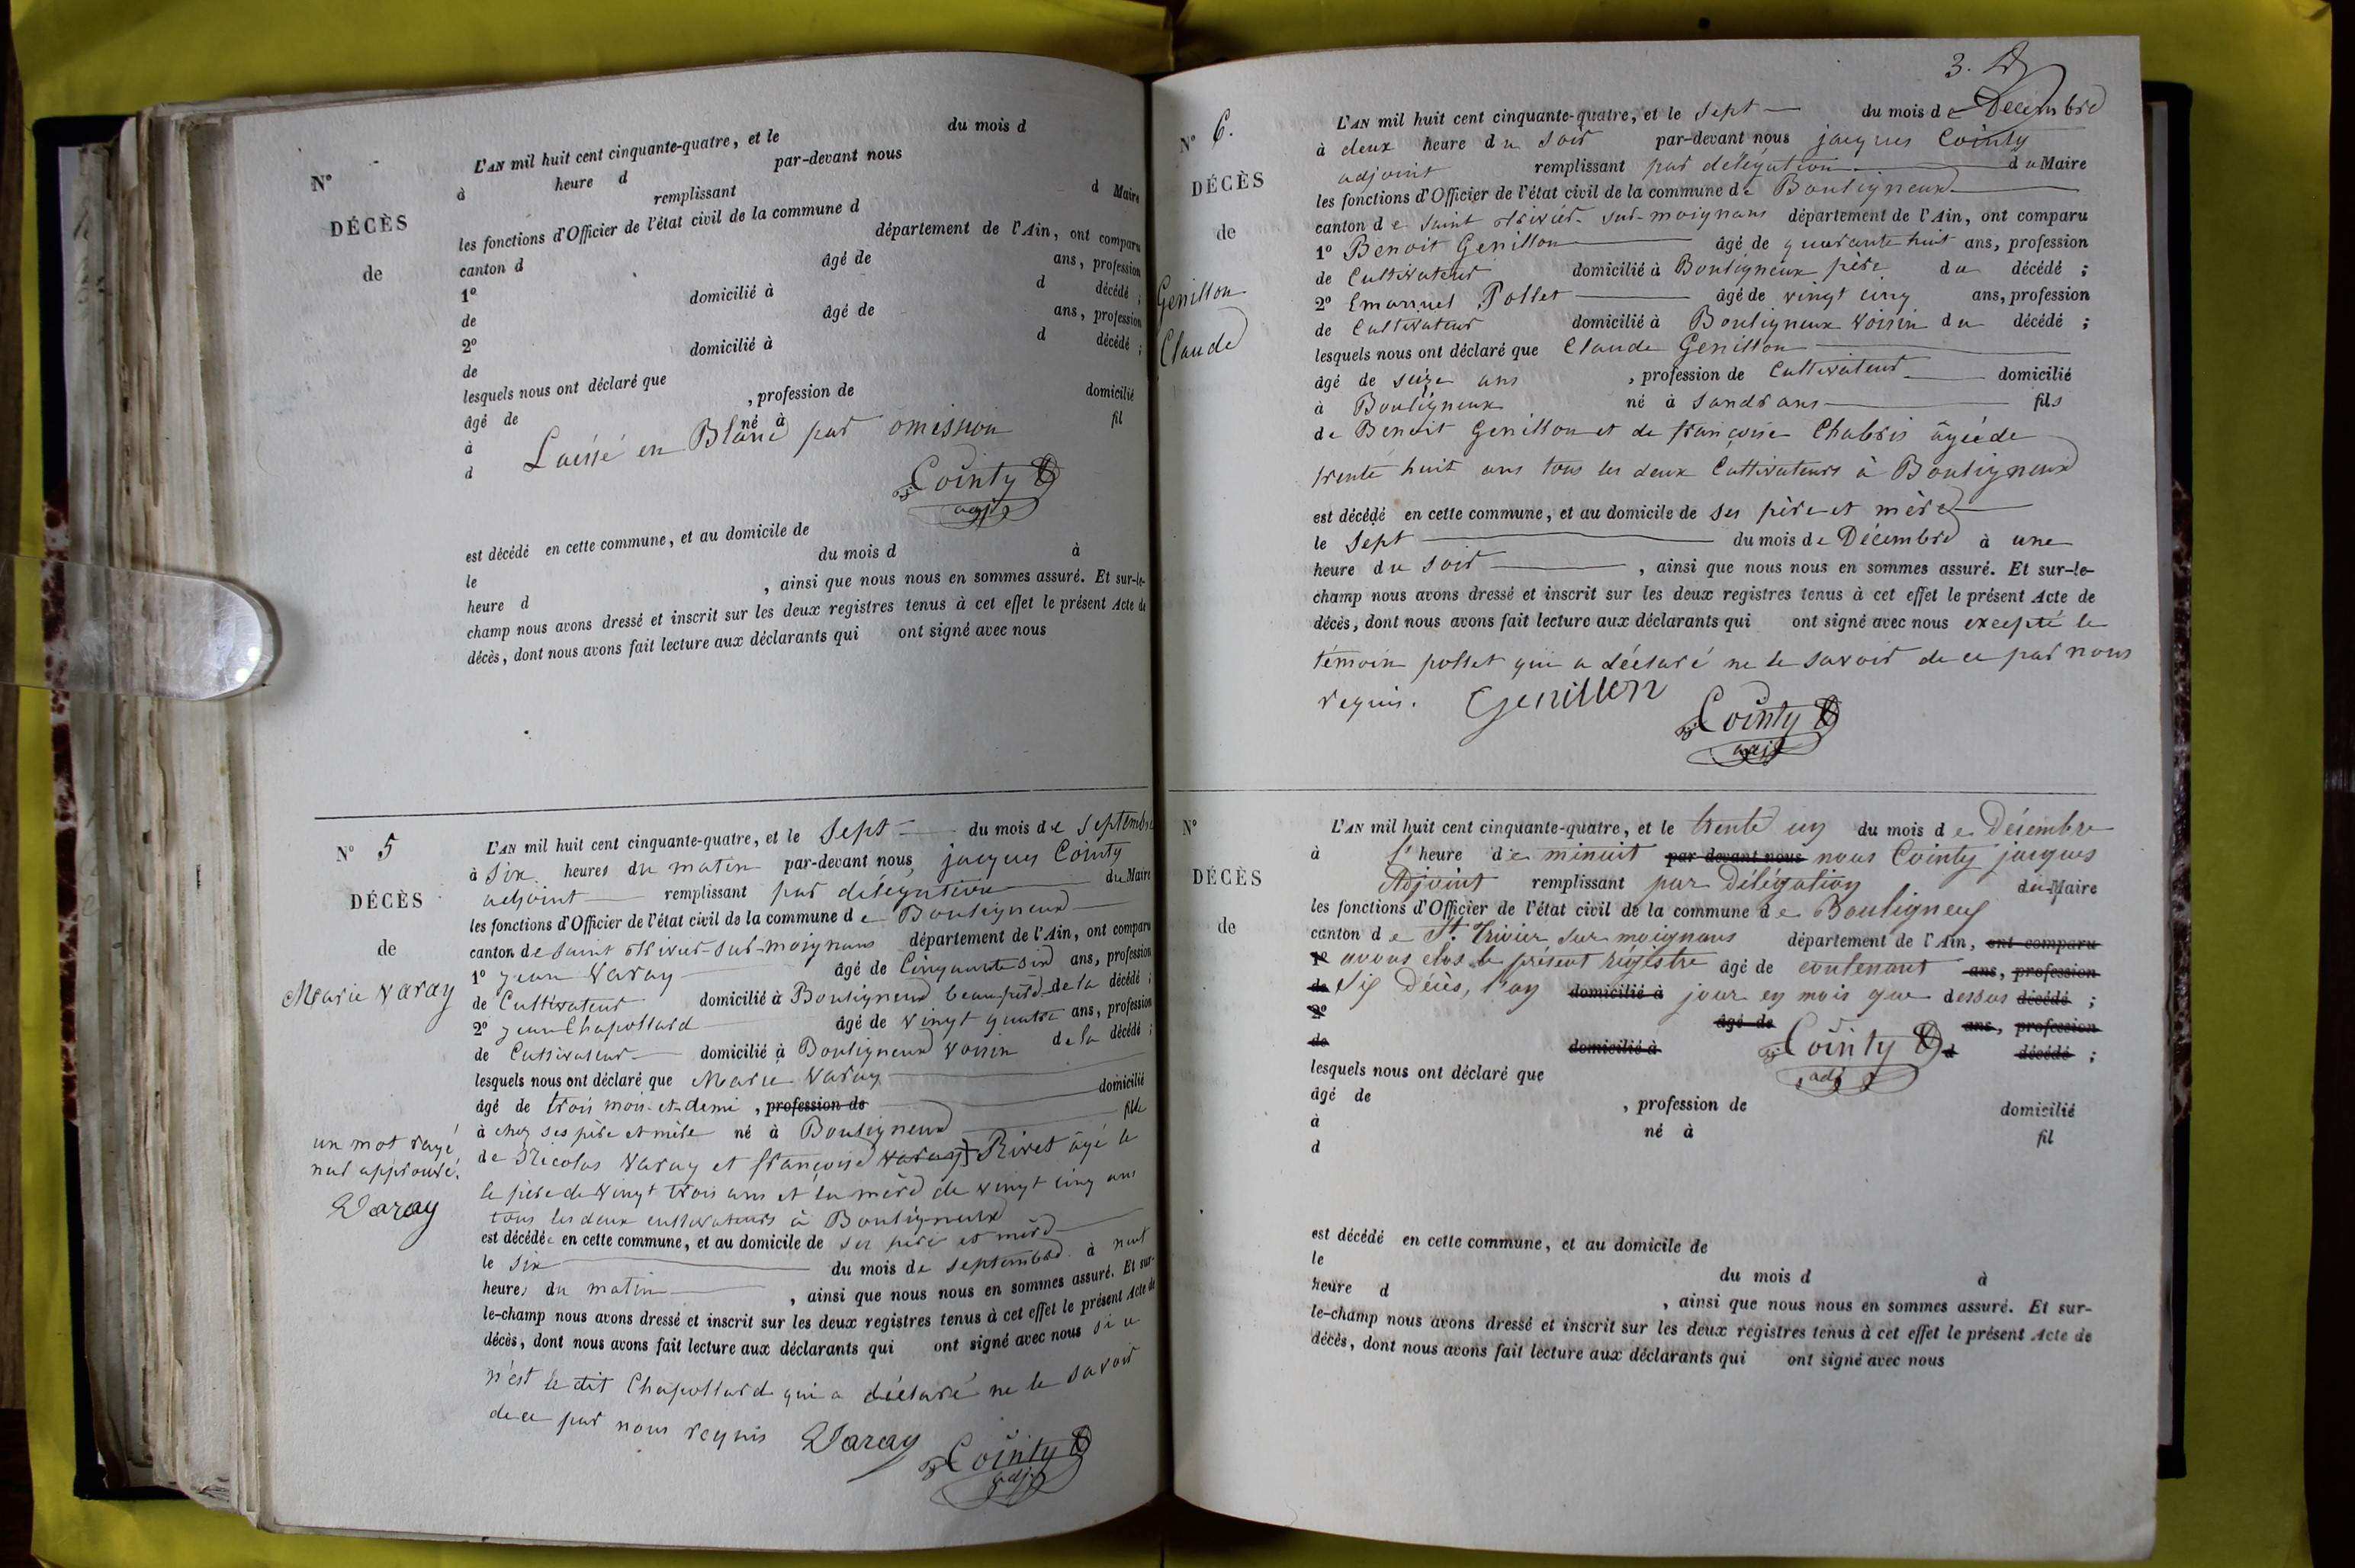 N°
DÉCÈS
de
L'AN mil huit cent cinquante-quatre, et le du mois d
à heure d par-devant nous
remplissant d Maire
les fonctions d'Officier de l'état civil de la commune d
canton d département de l'Ain, ont comparu
1° âgé de ans, profession
de domicilié à d décédé ;
2° âgé de ans, profession
de domicilié à d décédé ;
lesquels nous ont déclaré que
âgé de , profession de domicilié
à né à fil
d Laissé en Blanc par omission
Cointy
adj
est décédé en cette commune, et au domicile de
le du mois d à
heure d , ainsi que nous nous en sommes assuré. Et sur-le-
champ nous avons dressé et inscrit sur les deux registres tenus à cet effet le présent Acte de
décès, dont nous avons fait lecture aux déclarants qui ont signé avec nous
N° 5
DÉCÈS
de
Marie Varay
un mot rayé
nul approuvé.
Varay
L'AN mil huit cent cinquante-quatre, et le Sept du mois de Septembre
à Six heures du matin par-devant nous, jacques Cointy
adjoint remplissant par délégation du Maire
les fonctions d'Officier de l'état civil de la commune de Bouligneux
canton de saint trivier-sur-moignans département de l'Ain, ont comparu
1° jean Varay âgé de Cinquante six ans, profession
de Cultivateur domicilié à Bouligneux beaupère de la décédé ;
2° jean Chapollard âgé de vingt quatre ans, profession
de Cultivateur domicilié à Bouligneux voisin de la décédé ;
lesquels nous ont déclaré que Marie Varay
âgé de trois mois et demi , profession de domicilié
à chez ses père et mère né à Bouligneux fille
de Nicolas Varay et françoise Varay Rivet âgé le
le père de vingt trois ans et la mère de vingt cinq ans
tous les deux cultivateurs à Bouligneux
est décédée en cette commune, et au domicile de ses père et mère
le six du mois de septembre à neuf
heures du matin , ainsi que nous nous en sommes assuré. Et sur-
le-champ nous avons dressé et inscrit sur les deux registres tenus à cet effet le présent Acte de
décès, dont nous avons fait lecture aux déclarants qui ont signé avec nous si ce
n'est le dit Chapollard qui a déclaré ne le savoir
de ce par nous requis Varay Cointy
adj
3.
N° 6.
DÉCÈS
de
Genillon
Claude
L'AN mil huit cent cinquante-quatre, et le sept du mois de Décembre
à deux heure du soir par-devant nous jacques Cointy
adjoint remplissant par délégation du Maire
les fonctions d'Officier de l'état civil de la commune de Bouligneux
canton de saint trivier-sur-moignans département de l'Ain, ont comparu
1° Benoit Genillon âgé de quarante huit ans, profession
de Cultivateur domicilié à Bouligneux père du décédé ;
2° Emanuel Pollet âgé de vingt cinq ans, profession
de Cultivateur domicilié à Bouligneux voisin du décédé ;
lesquels nous ont déclaré que Claude Genillon
âgé de seize ans , profession de Cultivateur domicilié
à Bouligneux né à Sandrans fils
de Benoit Genillon et de françoise Chabris âgée de
trente huit ans tous les deux Cultivateurs à Bouligneux
est décédé en cette commune, et au domicile de ses père et mère
le Sept du mois de Décembre à une
heure du soir , ainsi que nous nous en sommes assuré. Et sur-le-
champ nous avons dressé et inscrit sur les deux registres tenus à cet effet le présent Acte de
décès, dont nous avons fait lecture aux déclarants qui ont signé avec nous excepté le
témoin pollet qui a déclaré ne le savoir de ce par nous
requis. Genillon Cointy
adj
N°
DÉCÈS
de
L'AN mil huit cent cinquante-quatre, et le trente un du mois de Décembre
à l'heure de minuit par devant nous nous Cointy jacques
Adjoint remplissant par Délégation du Maire
les fonctions d'Officier de l'état civil de la commune de Bouligneux
canton de St. Trivier sur moignans département de l'Ain, ont comparu
1° avons clos le présent régistre âgé de contenant ans, profession
de Six Décès, l'an domicilié à jour en mois que dessus décédé ;
2° âgé de ans, profession
de domicilié à Cointy d décédé ;
adj
lesquels nous ont déclaré que
âgé de , profession de domicilié
à né à fil
d
est décédé en cette commune, et au domicile de
le du mois d à
heure d , ainsi que nous nous en sommes assuré. Et sur-
le-champ nous avons dressé et inscrit sur les deux registres tenus à cet effet le présent Acte de
décès, dont nous avons fait lecture aux déclarants qui ont signé avec nous